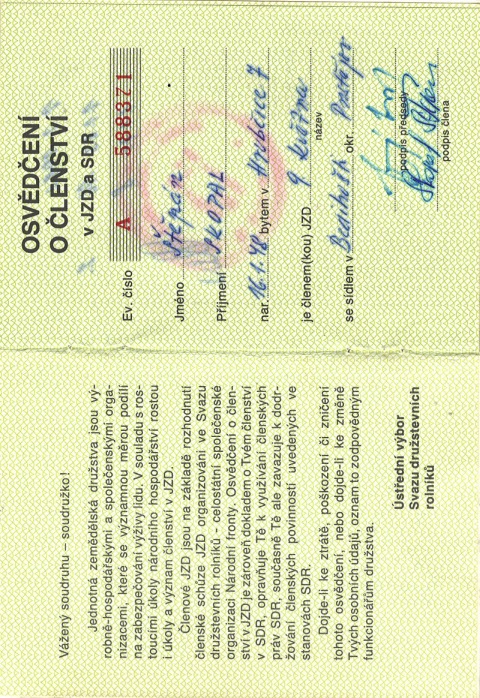 Vážený soudruhu – soudružko!
Jednotná zemědělská družstva jsou vý-
robně-hospodářskými a společenskými orga-
nizacemi, které se významnou měrou podílí
na zabezpečování výživy lidu. V souladu s ros-
toucími úkoly národního hospodářství rostou
i úkoly a význam členství v JZD.
Členové JZD jsou na základě rozhodnutí
členské schůze JZD organizováni ve Svazu
družstevních rolníků - celostátní společenské
organizaci Národní fronty. Osvědčení o člen-
ství v JZD je zároveň dokladem o Tvém členství
v SDR, opravňuje Tě k využívání členských
práv SDR, současně Tě ale zavazuje k dodr-
žování členských povinností uvedených ve
stanovách SDR.
Dojde-li ke ztrátě, poškození či zničení
tohoto osvědčení, nebo dojde-li ke změně
Tvých osobních údajů, oznam to zodpovědným
funkcionářům družstva.
Ústřední výbor
Svazu družstevních
rolníků
OSVĚDČENÍ
O ČLENSTVÍ
v JZD a SDR
Ev. číslo A 588371
Jméno Štěpán
Příjmení SKOPAL
nar. 16.1.48 bytem v Hrubčice 7
je členem(kou) JZD 9 května
název
se sídlem v Bedihošti okr. Prostějov
podpis předsedy
Skopal Štěpán
podpis člena